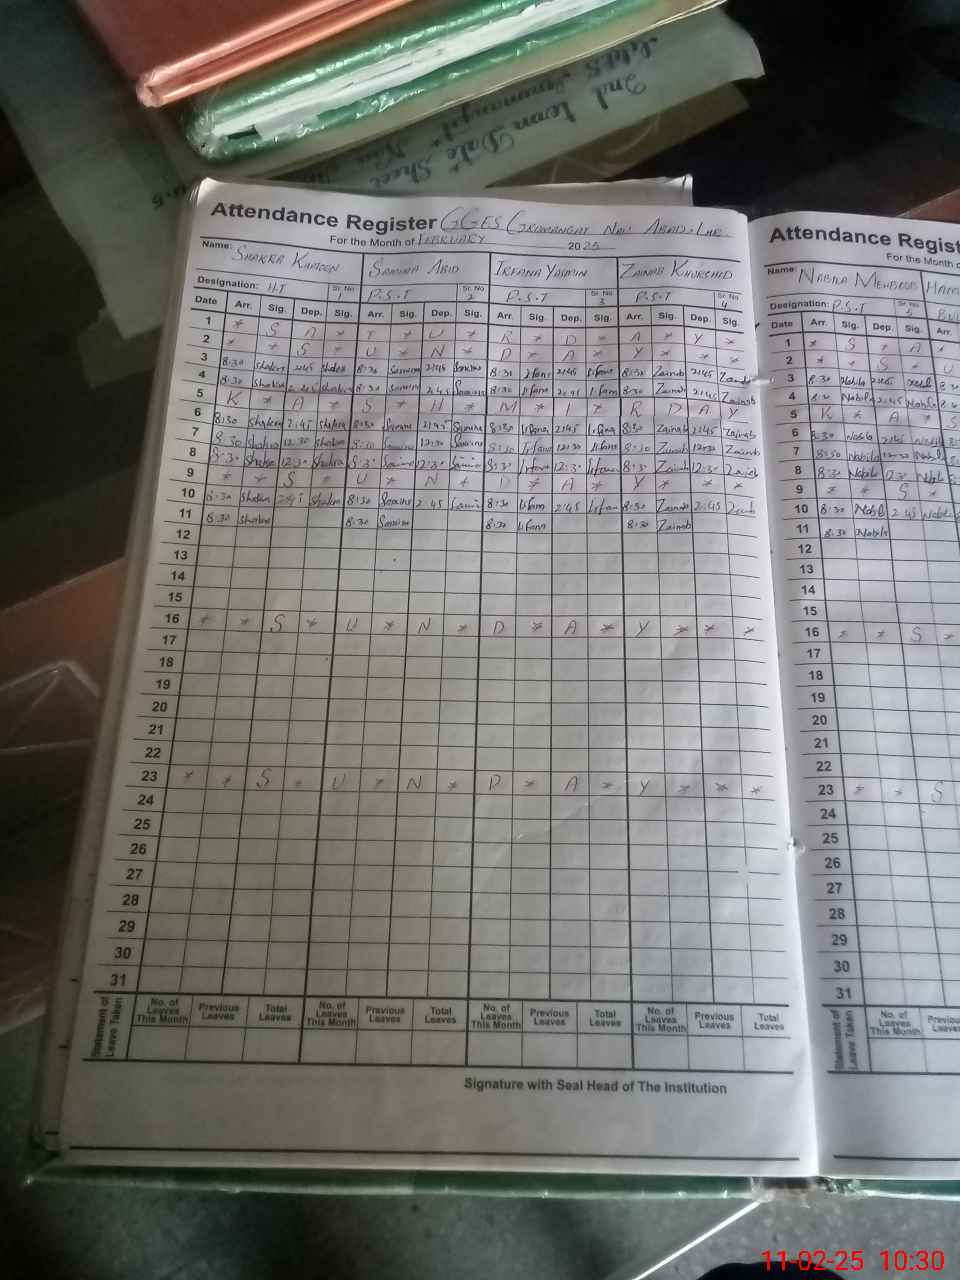 2nd term Date Sheet
Attendance Register GGES
For the Month of FEBRUARY 2025
Name: SHAKRA KHATOON SAMINA ABID IRFANA YASMIN ZAINAB KHURSHID
Designation: H.T Sr. No 1 P.S.T Sr. No 2 P.S.T Sr. No P.S.T Sr. No 4
Date Arr. Sig. Dep. Sig. Arr. Sig. Dep. Sig. Arr. Sig. Dep. Sig. Arr. Sig. Dep. Sig.
1 * S A * T * U * R * D * A * Y *
2 * * S * U * N * D * A * Y * * *
3 8:30 Shakra 2:45 Shakra 8:30 Samina 2:45 Samina 8:30 Irfana 2:45 Irfana 8:30 Zainab 2:45 Zainab
4 8:30 Shakra 2:45 Shakra 8:30 Samina 2:45 Samina 8:30 Irfana 2:45 Irfana 8:30 Zainab 2:45 Zainab
5 K * A * S * H * M * I * R D A Y
6 8:30 Shakra 2:45 Shakra 8:30 Samina 2:45 Samina 8:30 Irfana 2:45 Irfana 8:30 Zainab 2:45 Zainab
7 8:30 Shakra 12:30 Shakra 8:30 Samina 12:30 Samina 8:30 Irfana 12:30 Irfana 8:30 Zainab 12:30 Zainab
8 8:30 Shakra 12:30 Shakra 8:30 Samina 12:30 Samina 8:30 Irfana 12:30 Irfana 8:30 Zainab 12:30 Zainab
9 * * S * U * N * D * A * Y * * *
10 8:30 Shakra 2:45 Shakra 8:30 Samina 2:45 Samina 8:30 Irfana 2:45 Irfana 8:30 Zainab 2:45 Zainab
11 8:30 Shakra 8:30 Samina 8:30 Irfana 8:30 Zainab
12
13
14
15
16 * * S * U * N * D * A * Y * * *
17
18
19
20
21
22
23 * * S * U * N * D * A * Y * * *
24
25
26
27
28
29
30
31
Statement of Leave Taken No. of Leaves This Month Previous Leaves Total Leaves No. of Leaves This Month Previous Leaves Total Leaves No. of Leaves This Month Previous Leaves Total Leaves No. of Leaves This Month Previous Leaves Total Leaves
Signature with Seal Head of The Institution
Attendance Regist
For the Month o
Name: NABILA MEHBOOB
Designation: P.S.T Sr. No 5
Date Arr. Sig. Dep. Sig. Arr.
1 * S * A *
2 * * S * U
3 8:30 Nabila 2:45 Nabila 8:30
4 8:30 Nabila 2:45 Nabila
5 K * A * S
6 8:30 Nabila 2:45 Nabila
7 8:30 Nabila 12:30 Nabila
8 8:30 Nabila 12:30 Nabila
9 * * S *
10 8:30 Nabila 2:45 Nabila
11 8:30 Nabila
12
13
14
15
16 * * S *
17
18
19
20
21
22
23 * * S
24
25
26
27
28
29
30
31
Statement of Leave Taken No. of Leaves This Month Previous Leaves
11-02-25 10:30